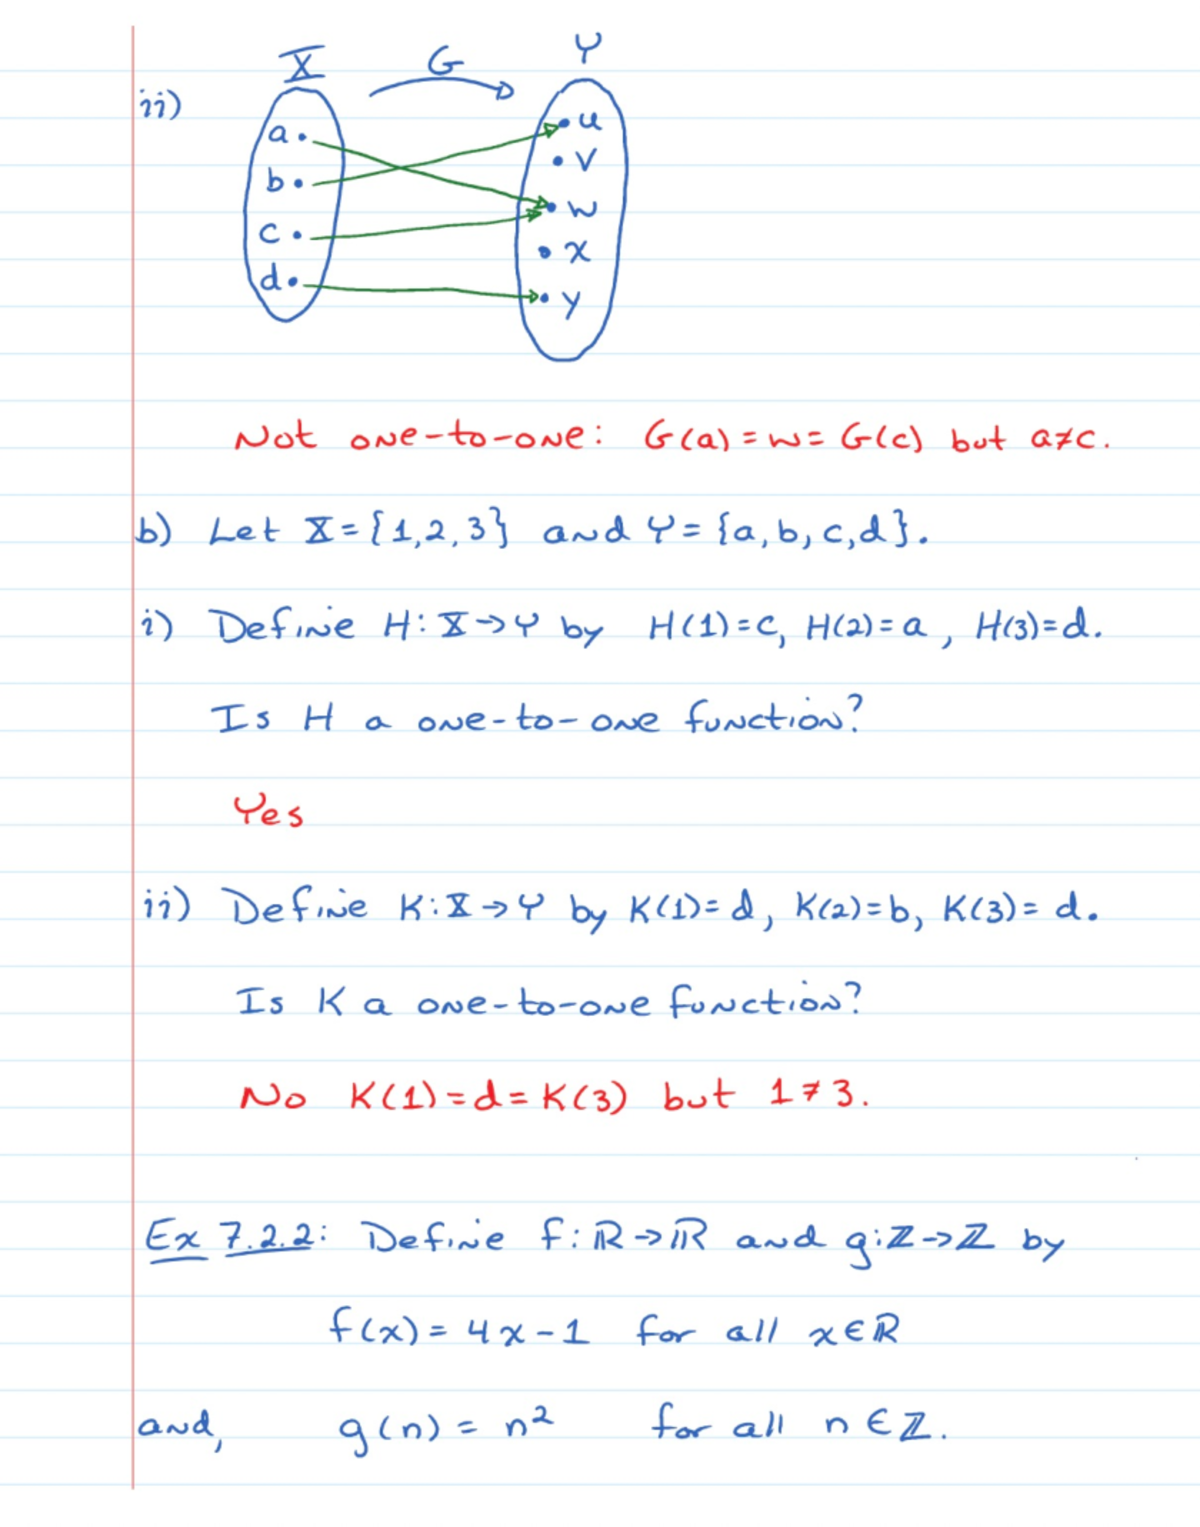 X G Y
ii)
a. • u
b. • v
c. • w
d. • x
• y
Not one-to-one: G(a) = w = G(c) but a≠c.
b) Let X = {1,2,3} and Y = {a,b,c,d}.
i) Define H: X→Y by H(1)=c, H(2)=a, H(3)=d.
Is H a one-to-one function?
Yes
ii) Define K: X→Y by K(1)=d, K(2)=b, K(3)=d.
Is K a one-to-one function?
No K(1)=d=K(3) but 1≠3.
Ex 7.2.2: Define f: ℝ→ℝ and g: ℤ→ℤ by
f(x) = 4x-1 for all x∈ℝ
and, g(n) = n² for all n∈ℤ.